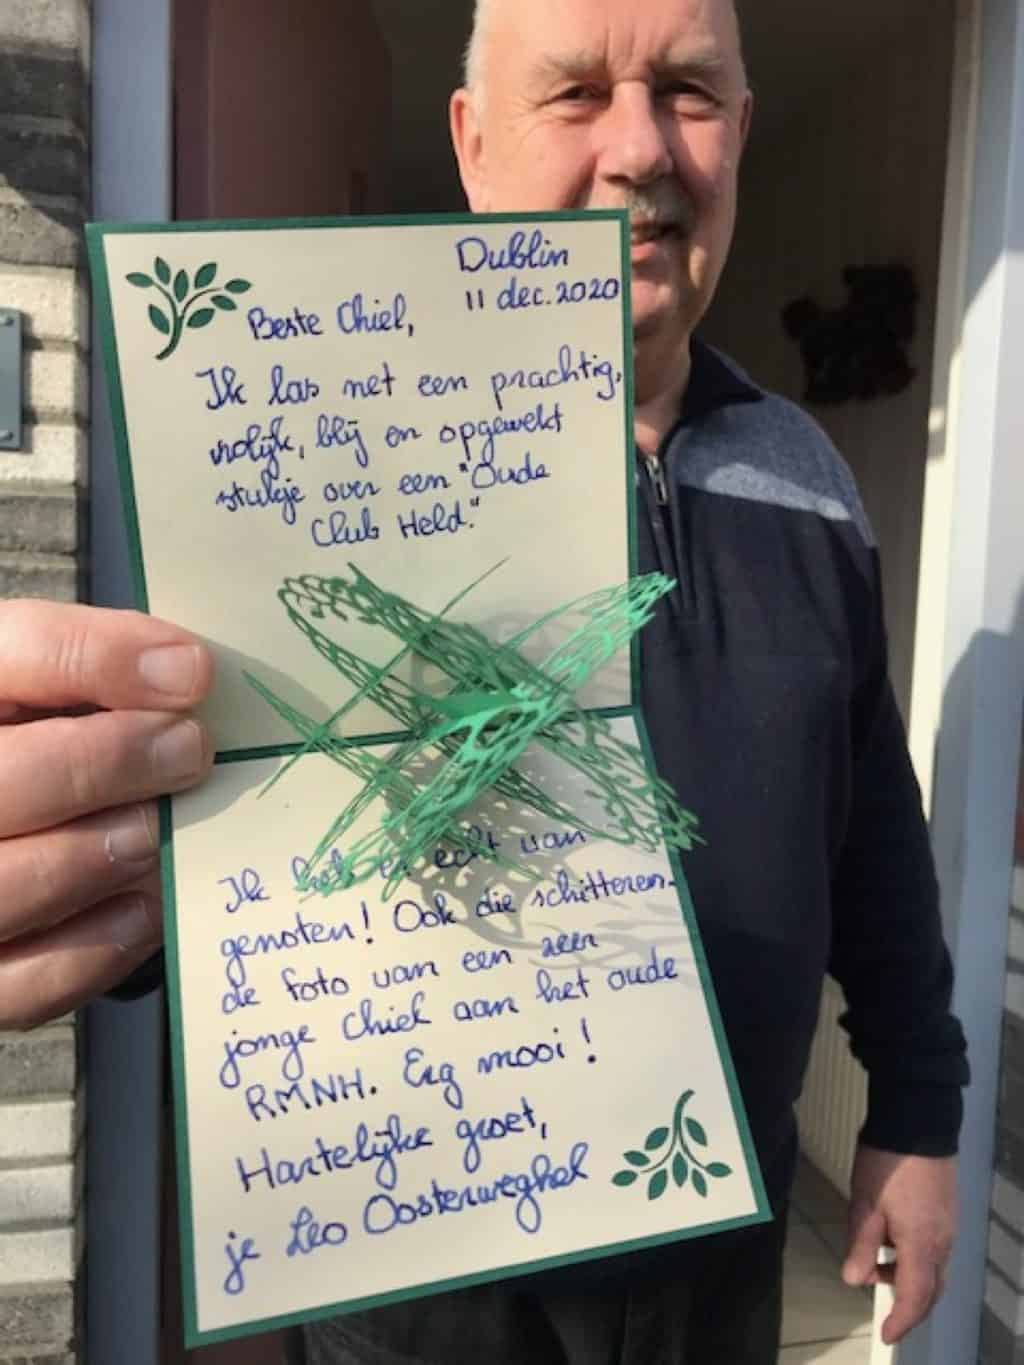 Dublin
11 dec. 2020
Beste Chiel,
Ik las net een prachtig,
vrolijk, blij en opgewekt
stukje over een "Oude
Club Held."
Ik heb er echt van
genoten! Ook die schitteren-
de foto van een zeer
jonge Chiel aan het oude
RMNH. Erg mooi!
Hartelijke groet,
je Leo Oosterweghel